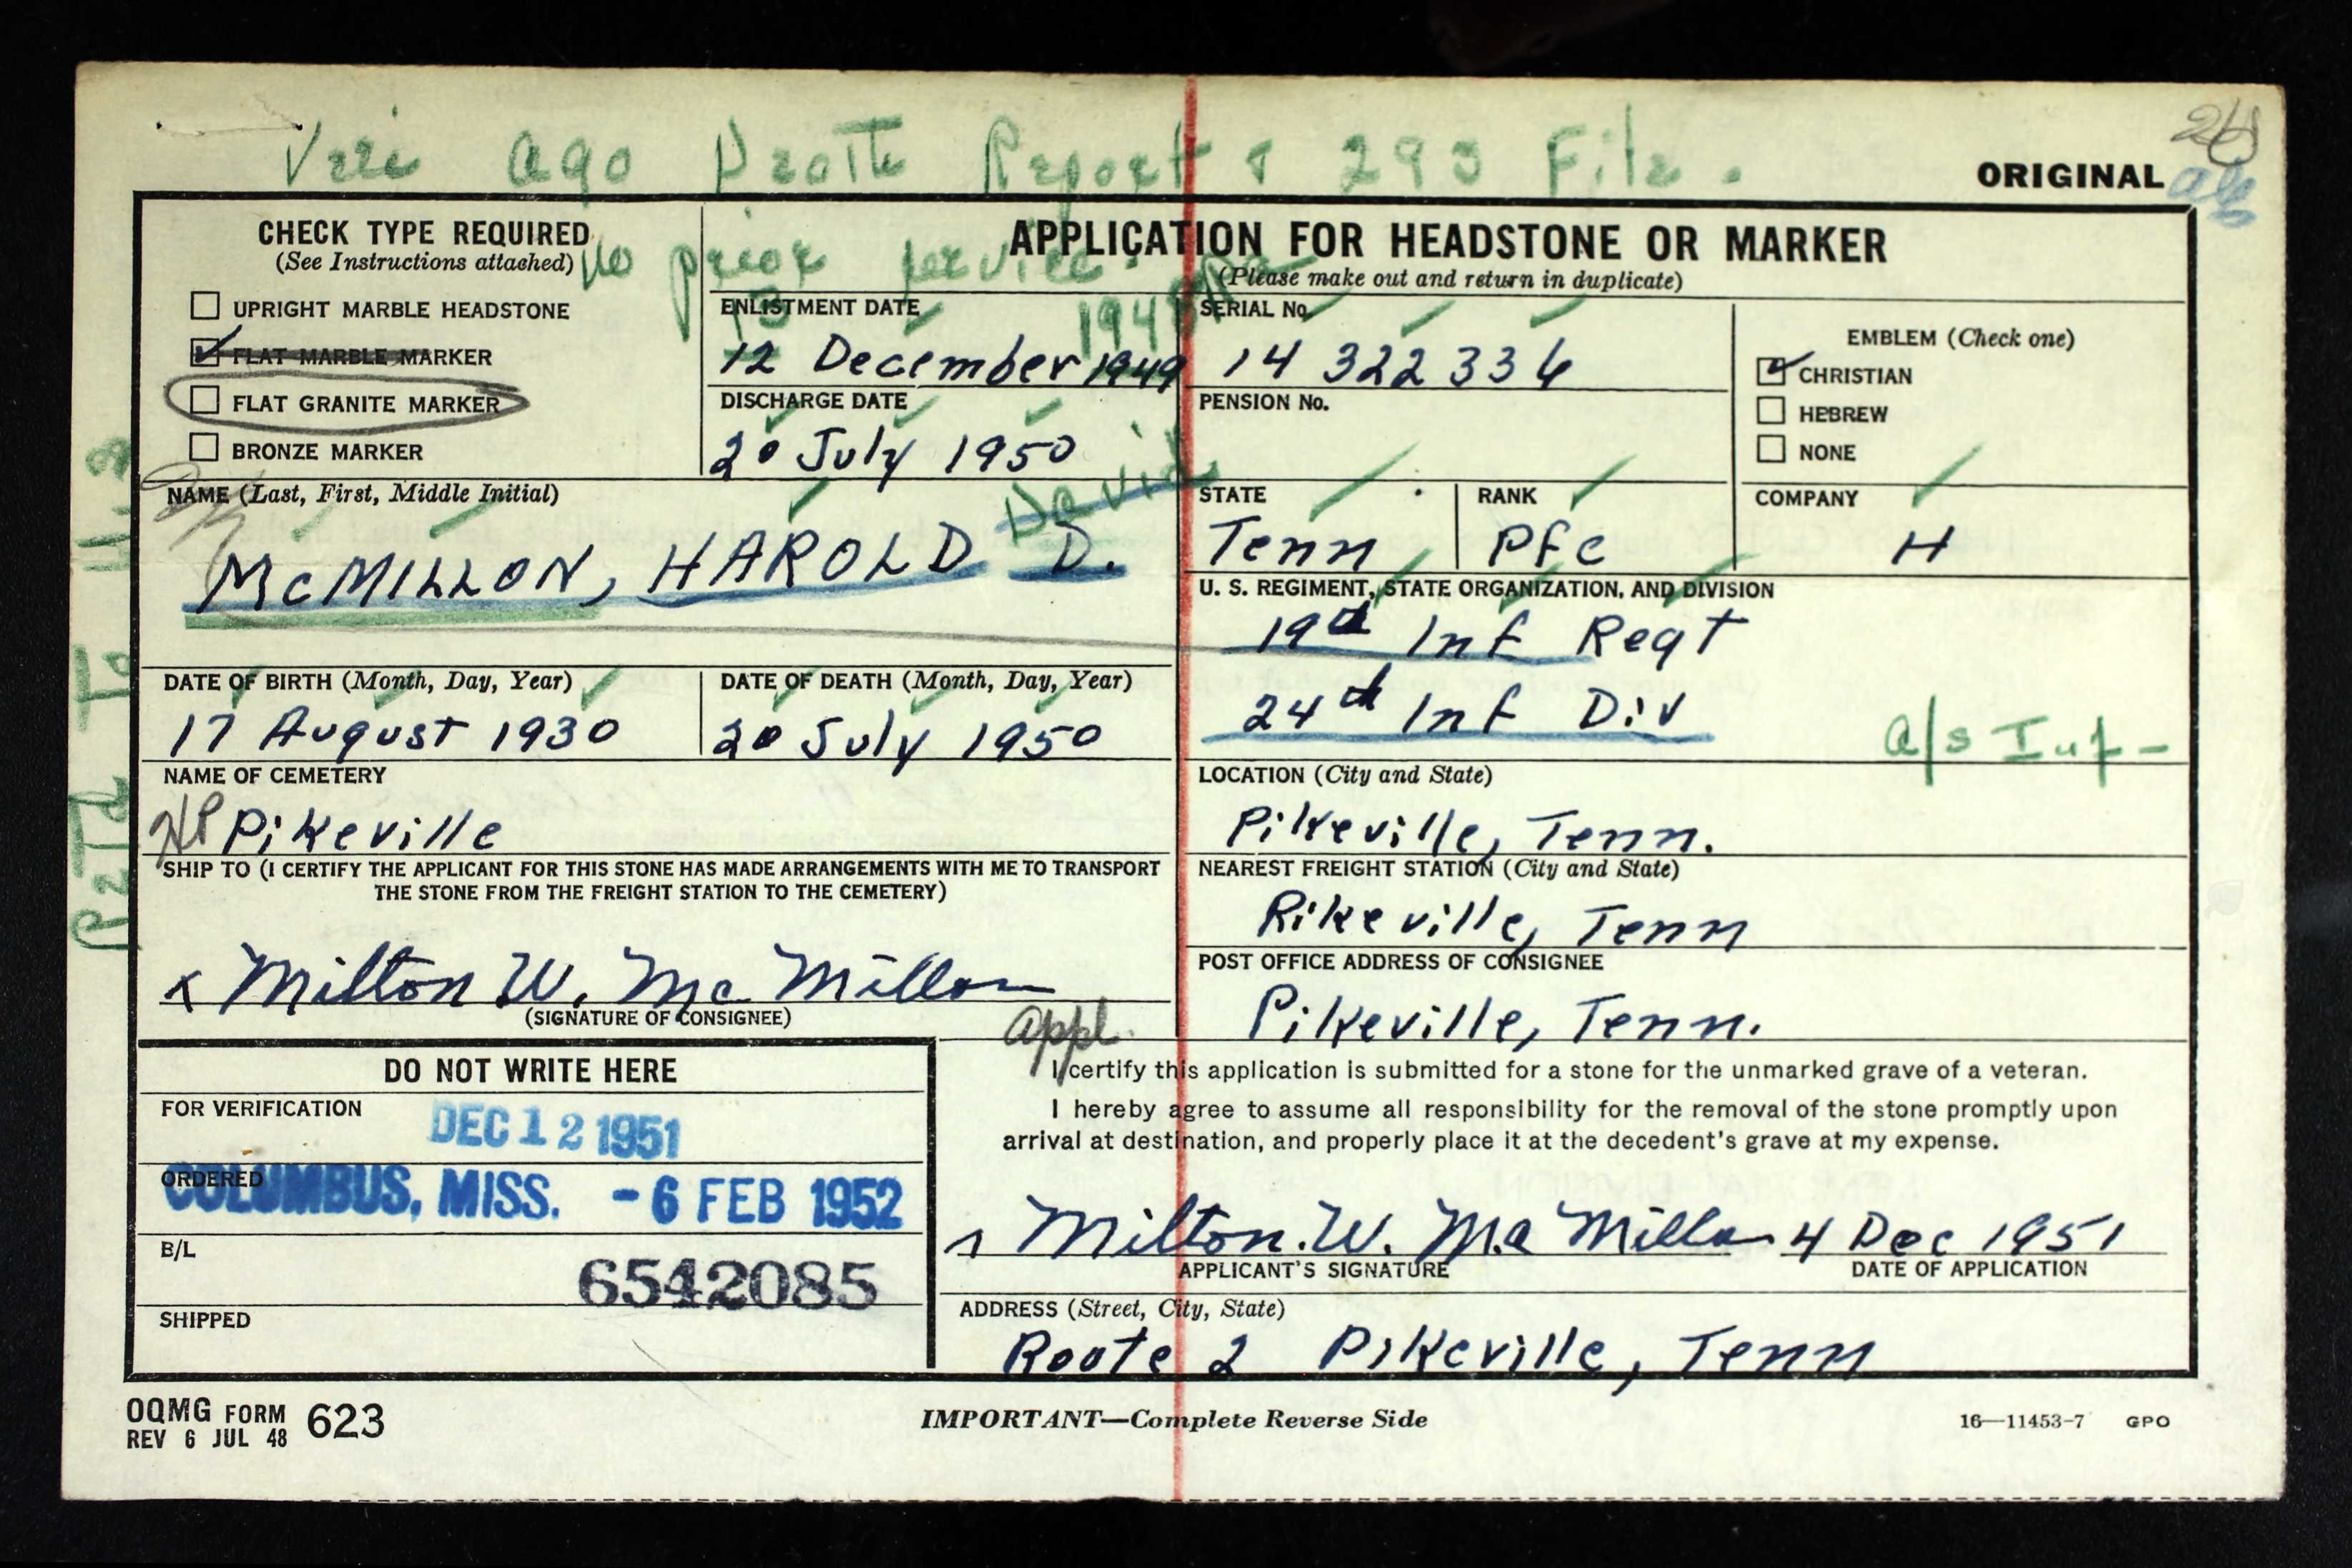 Veri AGO Death Report & 293 File.
ORIGINAL
CHECK TYPE REQUIRED
(See Instructions attached)
No prior service.
APPLICATION FOR HEADSTONE OR MARKER
(Please make out and return in duplicate)
UPRIGHT MARBLE HEADSTONE
FLAT MARBLE MARKER
FLAT GRANITE MARKER
BRONZE MARKER
ENLISTMENT DATE
13 1948
12 December 1949
DISCHARGE DATE
20 July 1950
SERIAL No.
14 322 336
PENSION No.
EMBLEM (Check one)
CHRISTIAN
HEBREW
NONE
NAME (Last, First, Middle Initial)
David
McMILLON, HAROLD D.
STATE
Tenn
RANK
Pfc
COMPANY
H
U. S. REGIMENT, STATE ORGANIZATION, AND DIVISION
19th Inf Regt
24th Inf Div
a/s Inf-
DATE OF BIRTH (Month, Day, Year)
17 August 1930
DATE OF DEATH (Month, Day, Year)
20 July 1950
NAME OF CEMETERY
Pikeville
LOCATION (City and State)
Pikeville, Tenn.
SHIP TO (I CERTIFY THE APPLICANT FOR THIS STONE HAS MADE ARRANGEMENTS WITH ME TO TRANSPORT
THE STONE FROM THE FREIGHT STATION TO THE CEMETERY)
x Milton W. McMillon
(SIGNATURE OF CONSIGNEE)
NEAREST FREIGHT STATION (City and State)
Pikeville, Tenn
POST OFFICE ADDRESS OF CONSIGNEE
Pikeville, Tenn.
DO NOT WRITE HERE
FOR VERIFICATION
DEC 12 1951
ORDERED
COLUMBUS, MISS. -6 FEB 1952
B/L
6542085
SHIPPED
appl.
I certify this application is submitted for a stone for the unmarked grave of a veteran.
I hereby agree to assume all responsibility for the removal of the stone promptly upon
arrival at destination, and properly place it at the decedent's grave at my expense.
Milton W. McMillon 4 Dec 1951
APPLICANT'S SIGNATURE
DATE OF APPLICATION
ADDRESS (Street, City, State)
Route 2 Pikeville, Tenn
OQMG FORM 623
REV 6 JUL 48
IMPORTANT—Complete Reverse Side
16—11453-7 GPO